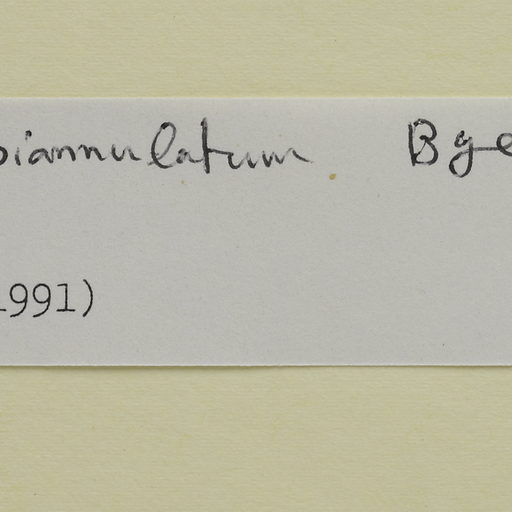 biannulatum Bge
1991)